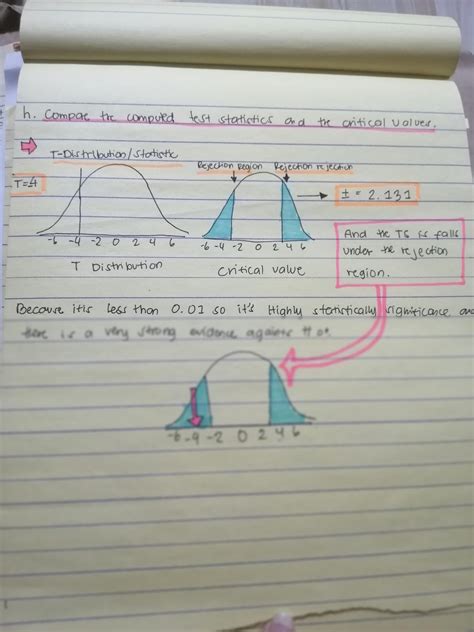 h. Compae the computed test statistics and the critical values.
T-Distribution/Statistic
Rejection Region Rejection rejection
T=-4
± = 2.131
-6 -4 -2 0 2 4 6
-6 -4 -2 0 2 4 6
T Distribution
Critical value
And the TS is falls
under the rejection
region.
Because itis less than 0.01 so it's Highly statistically significance and
there is a very strong evidence against Ho.
-6 -4 -2 0 2 4 6